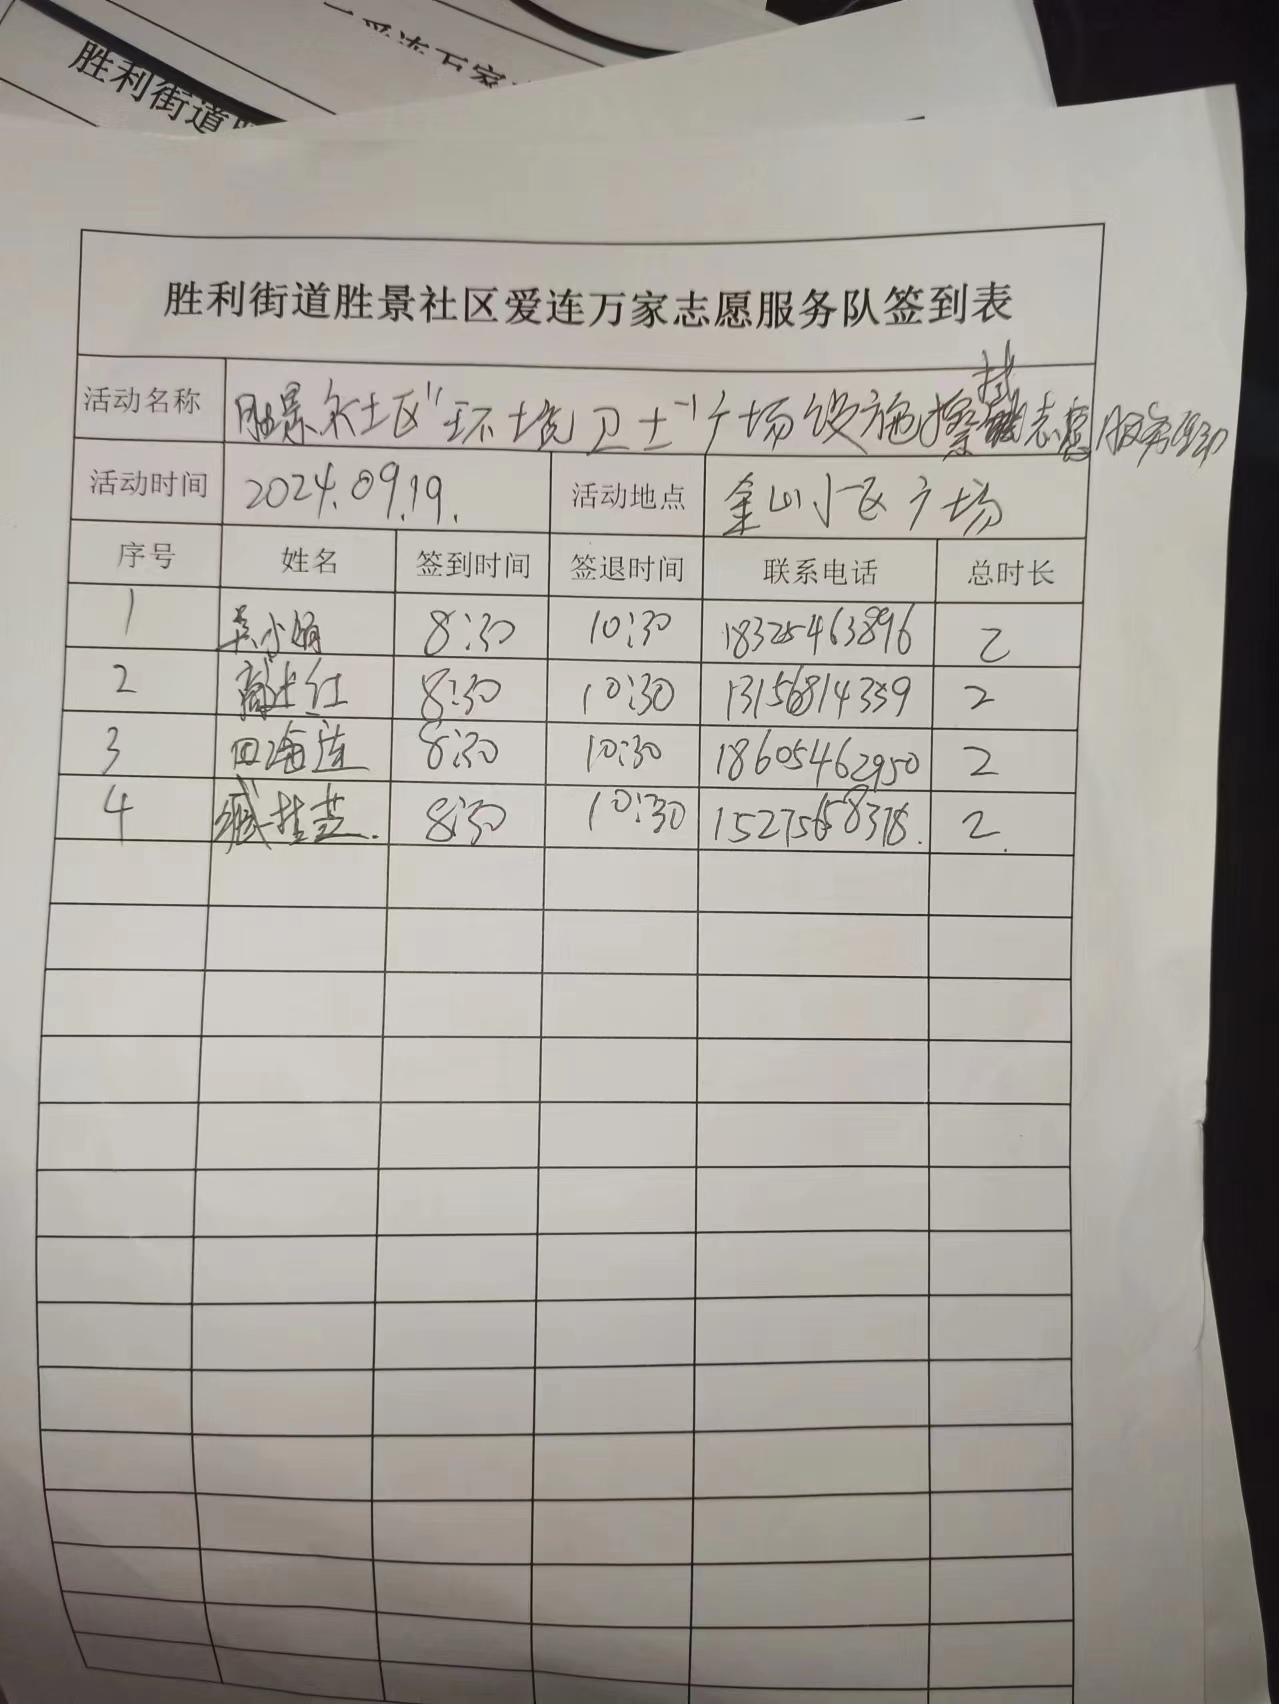 胜利街道
爱连万家
胜利街道胜景社区爱连万家志愿服务队签到表
活动名称 胜景社区"环境卫士"广场设施擦拭志愿服务活动
活动时间 2024.09.19. 活动地点 金山小区广场
序号 姓名 签到时间 签退时间 联系电话 总时长
1 吴小娟 8:30 10:30 18325463896 2
2 8:30 10:30 13156814359 2
3 田海莲 8:30 10:30 18605462950 2
4 臧桂芝. 8:30 10:30 2.